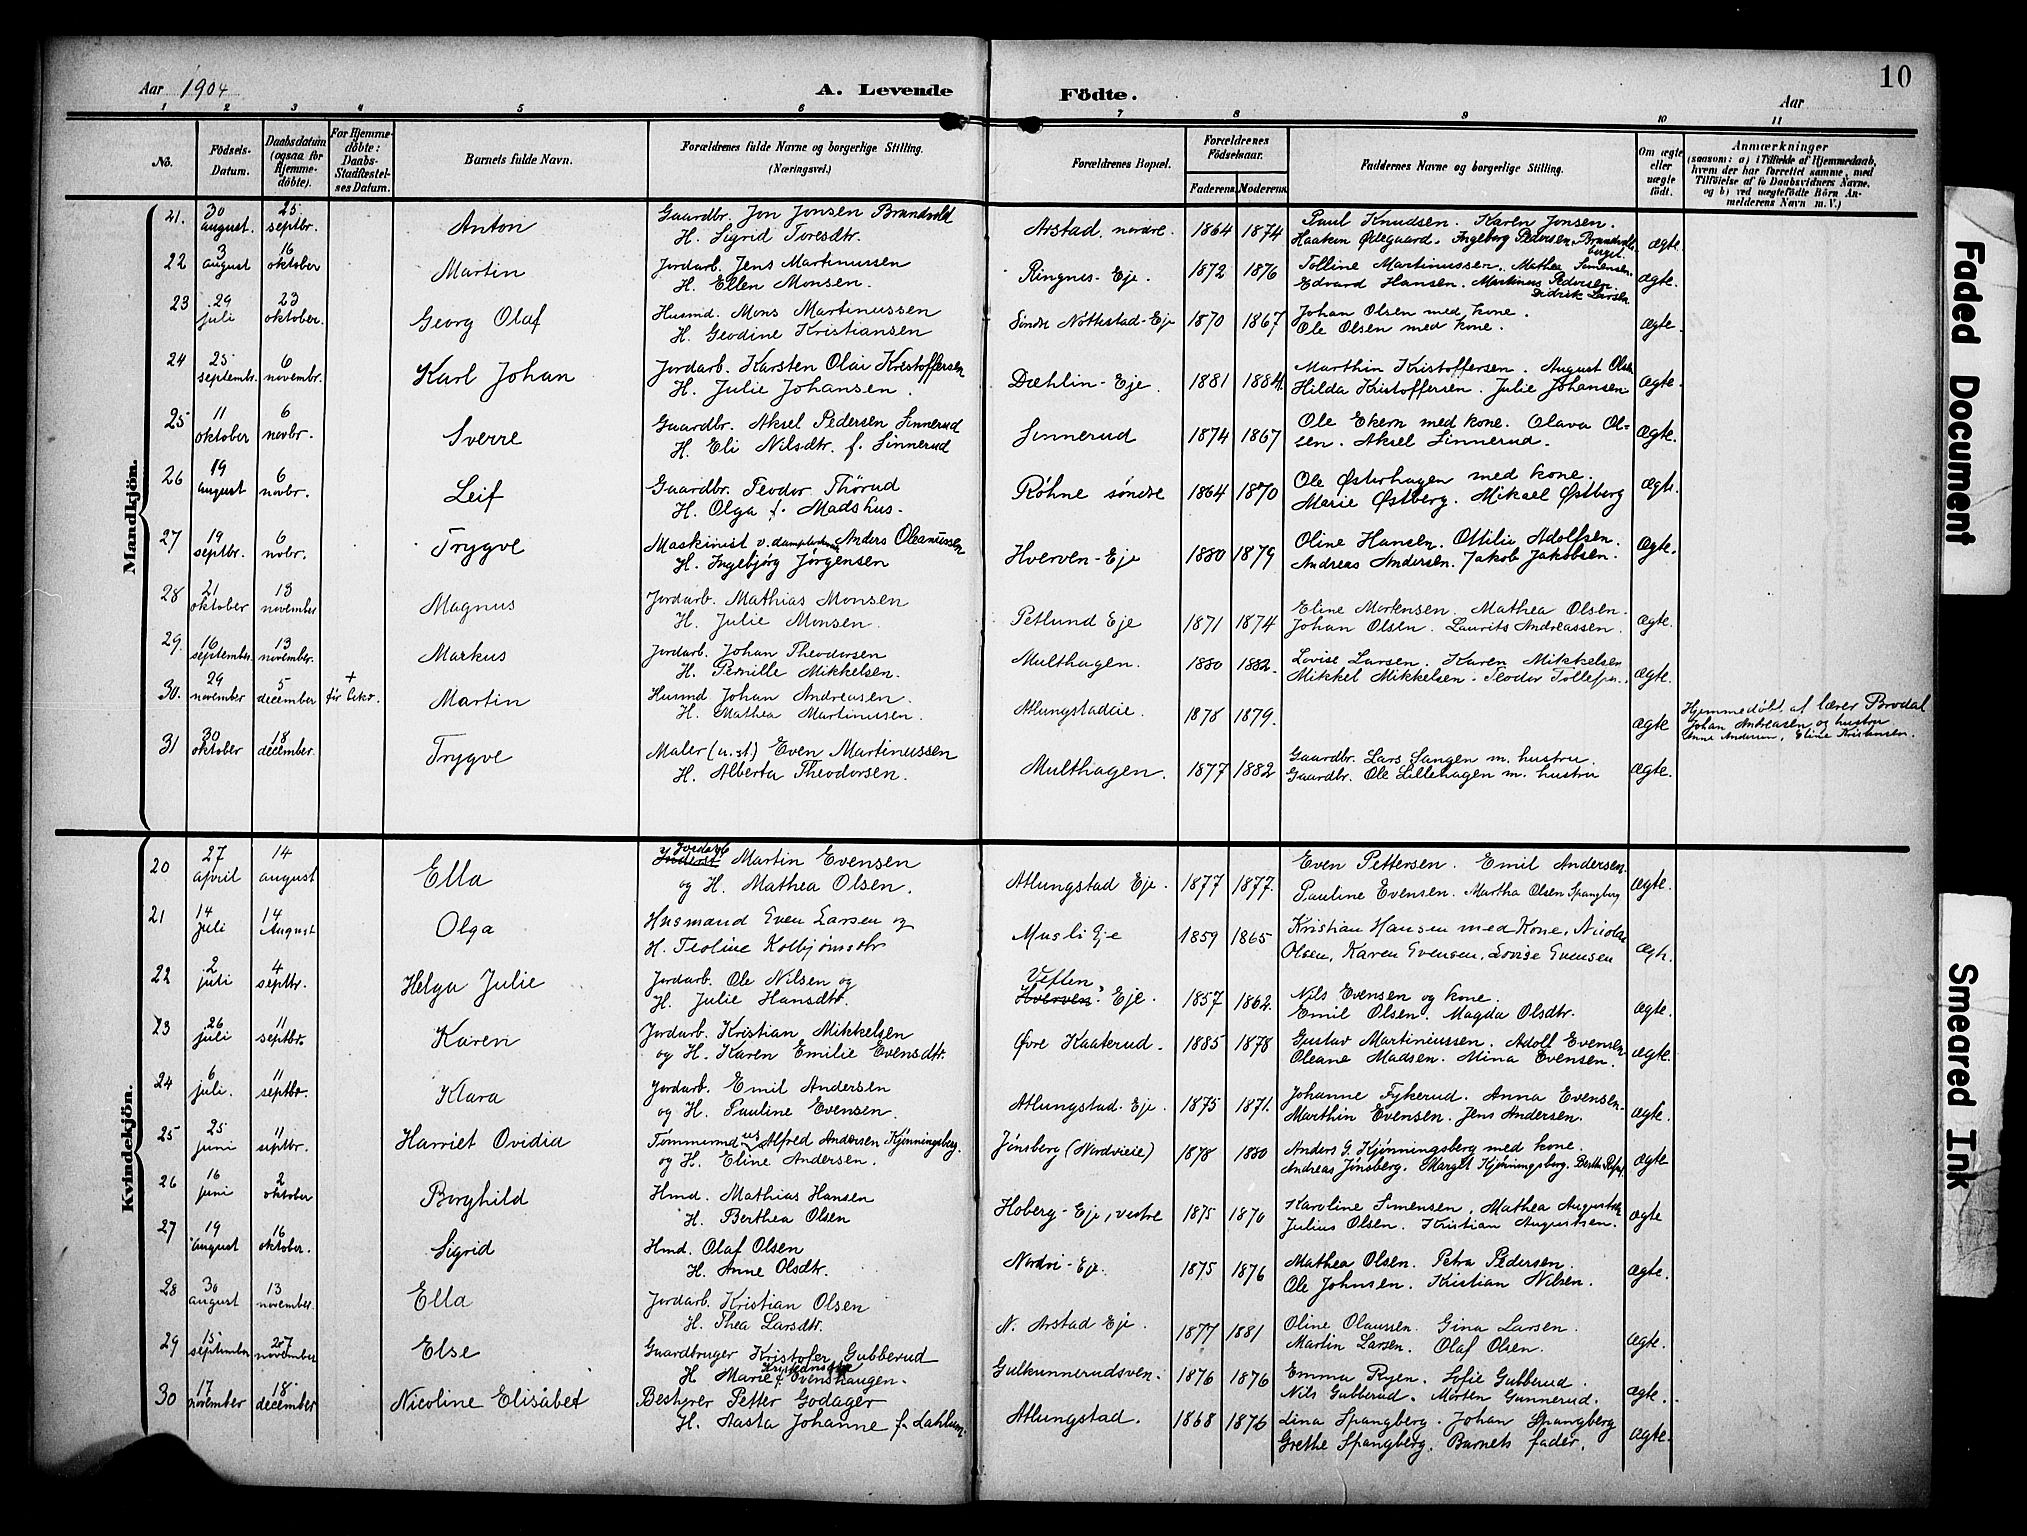 10
Aar 1904 A. Levende Födte. Aar
1 2 3 4 5 6 7 8 9 10 11
No. Födsels-Datum. Daabsdatum (ogsaa for Hjemme-döbte). For Hjemme-döbte: Daabs-Stadfæstel-ses Datum. Barnets fulde Navn. Forældrenes fulde Navne og borgerlige Stilling. (Næringsvei.) Forældrenes Bopæl. Forældrenes Födselsaar. Faderens. Moderens. Faddernes Navne og borgerlige Stilling. Om ægte eller uægte födt. Anmærkninger (saasom: a) i Tilfælde af Hjemmedaab, hvem der har forrettet samme, med Tilföielse af to Daabsvidners Navne, og b) ved uægtefödte Börn An-melderens Navn m. V.)
Mandkjön.
21. 30 august. 25 septbr. Anton Gaardbr. Jon Jonsen Brandvold H. Sigrid Toresdtr. Arstad, nordre. 1864 1874 Paul Knudsen. Karen Jonsen. Haaken Ødegaard. Ingeborg Pedersen, ægte.
22 3 august 16 oktober Martin Jordarb. Jens Martinussen H. Ellen Monsen. Ringnes-Eje. 1872 1876 Tolline Martinussen. Mathea Simensen. Edvard Hansen. Martinus Pedersen. Didrik Larsen ægte.
23 29 juli 23 oktober. Georg Olaf Husmd. Mons Martinussen H. Geodine Kristiansen Søndre Nøttestad-Eje 1870 1867 Johan Olsen med kone. Ole Olsen med kone. ægte.
24 25 septembr. 6 novembr. Karl Johan Jordarb. Karsten Olai Kristoffersen H. Julie Johansen. Dæhlin-Eje. 1881 1884. Marthin Kristoffersen. August Olsen Hilda Kristoffersen. Julie Johansen ægte.
25 11 oktober 6 novbr. Sverre Gaardbr. Aksel Pedersen Sinnerud H. Eli Nilsdtr. f. Sinnerud Sinnerud 1874 1867 Ole Ekern med kone. Olava Ol-sen. Aksel Sinnerud. Ægte.
26 19 august 6 novbr. Leif Gaardbr. Teodor Thørud H. Olga f. Madshus. Røhne søndre 1864 1870 Ole Østerhagen med kone. Marie Østberg. Mikael Østberg Ægte.
27 19 septbr. 6 novbr. Trygve Maskinist v. Anders Oleanussen H. Ingebjørg Jørgensen Hverven-Eje 1880 1879 Oline Hansen. Ottilie Adolfsen. Andreas Andersen. Jakob Jakobsen. Ægte.
28 21 oktober 13 november Magnus Jordarb. Mathias Monsen H. Julie Monsen. Petlund Eje 1871 1874 Eline Mortensen. Mathea Olsen. Johan Olsen. Laurits Andreassen. Ægte.
29. 16 september 13 november. Markus Jordarb. Johan Theodorsen H. Pernille Mikkelsen. Multhagen. 1880 1882. Lovise Larsen. Karen Mikkelsen Mikkel Mikkelsen. Teodor Tollefsen. Ægte.
30. 29 november 5 december + Martin Husmd Johan Andreasen. H. Mathea Martinusen. Atlungstadeie. 1878 1879. Ægte Hjemmedøbt af lærer Brodal Johan Andreasen og hustru Anne Andersen, Eline Kristensen.
31 30 oktober 18 december. Trygve Maler (u.st) Even Martinussen H. Alberta Theodorsen. Multhagen. 1877 1882 Gaardbr. Lars Sangen m. hustru Gaardbr. Ole Lillehagen m. hustru Ægte.
Kvindekjön.
20 27 april 14 august Ella Inderst Jordarb Martin Evensen og H. Mathea Olsen. Atlungstad Eje. 1877 1877. Even Pettersen. Emil Andersen. Pauline Evensen. Martha Olsen Spangberg Ægte.
21 14 juli 14 August Olga Husmand Even Larsen og H. Teoline Kolbjørnsdtr Musli Eje 1859 1865 Kristian Hansen med Kone, Nicolai Olsen, Karen Evensen, Lovise Evensen Ægte.
22 2 juli 4 septbr. Helga Julie Jordarb. Ole Nilsen og H. Julie Hansdtr. Veflen Hverven-Eje. 1857 1862. Nils Evensen og kone. Emil Olsen. Magda Olsdtr. ægte.
23 26 juli 11 septbr. Karen Jordarb. Kristian Mikkelsen og H. Karen Emilie Evensdtr. Øvre Kaaterud. 1885 1878 Gustav Martiniussen. Adolf Evensen Oleane Madsen. Mina Evensen. Ægte.
24 6 juli. 11 septbr. Klara Jordarb. Emil Andersen og H. Pauline Evensen. Atlungstad-Eje. 1875 1871. Johanne Fykerud. Anna Evensen. Marthin Evensen. Jens Andersen. Ægte.
25 25 juni 11 septbr. Harriet Ovidia Tømmermd us Alfred Andersen Kjønningsberg. og H. Eline Andersen. Jønsberg (Nordvieie) 1878 1880 Anders G. Kjønningsberg med kone. Andreas Jønsberg. Margit Kjønningsberg. Ægte
26 16 juni 2 oktober Borghild Hmd. Mathias Hansen H. Berthea Olsen Hoberg-Eje, vestre 1875 1870 Karoline Simensen, Mathea Augustsen Julius Olsen. Kristian Augustsen. Ægte
27 19 august 16 oktober. Sigrid Hmd. Olaf Olsen H. Anne Olsdtr. Nordvi-Eje. 1875 1876 Mathea Olsen. Petra Pedersen. Ole Johnsen. Kristian Nilsen. Ægte.
28 30 august 13 november. Ella Jordarb. Kristian Olsen H. Thea Larsdtr. N. Arstad Eje. 1877 1881 Oline Olaussen. Gina Larsen. Martin Larsen. Olaf Olsen. Ægte.
29 15 september 27 november Else Gaardbruger Kristofer Gubberud H Marie f. Evenshaugen. Gulkunnerudsven. 1876 1876 Emma Ryen. Sofie Gubberud. Nils Gubberud. Morten Gunnerud. Ægte.
30 17 november 18 december Nicoline Elisabet Bestyrer Petter Godager H. Aasta Johanne f. Dahlum. Atlungstad. 1868 1876 Lina Spangberg. Johan Spangberg Grethe Spangberg. Barnets fader. Ægte.
Faded Document
Smeared Ink